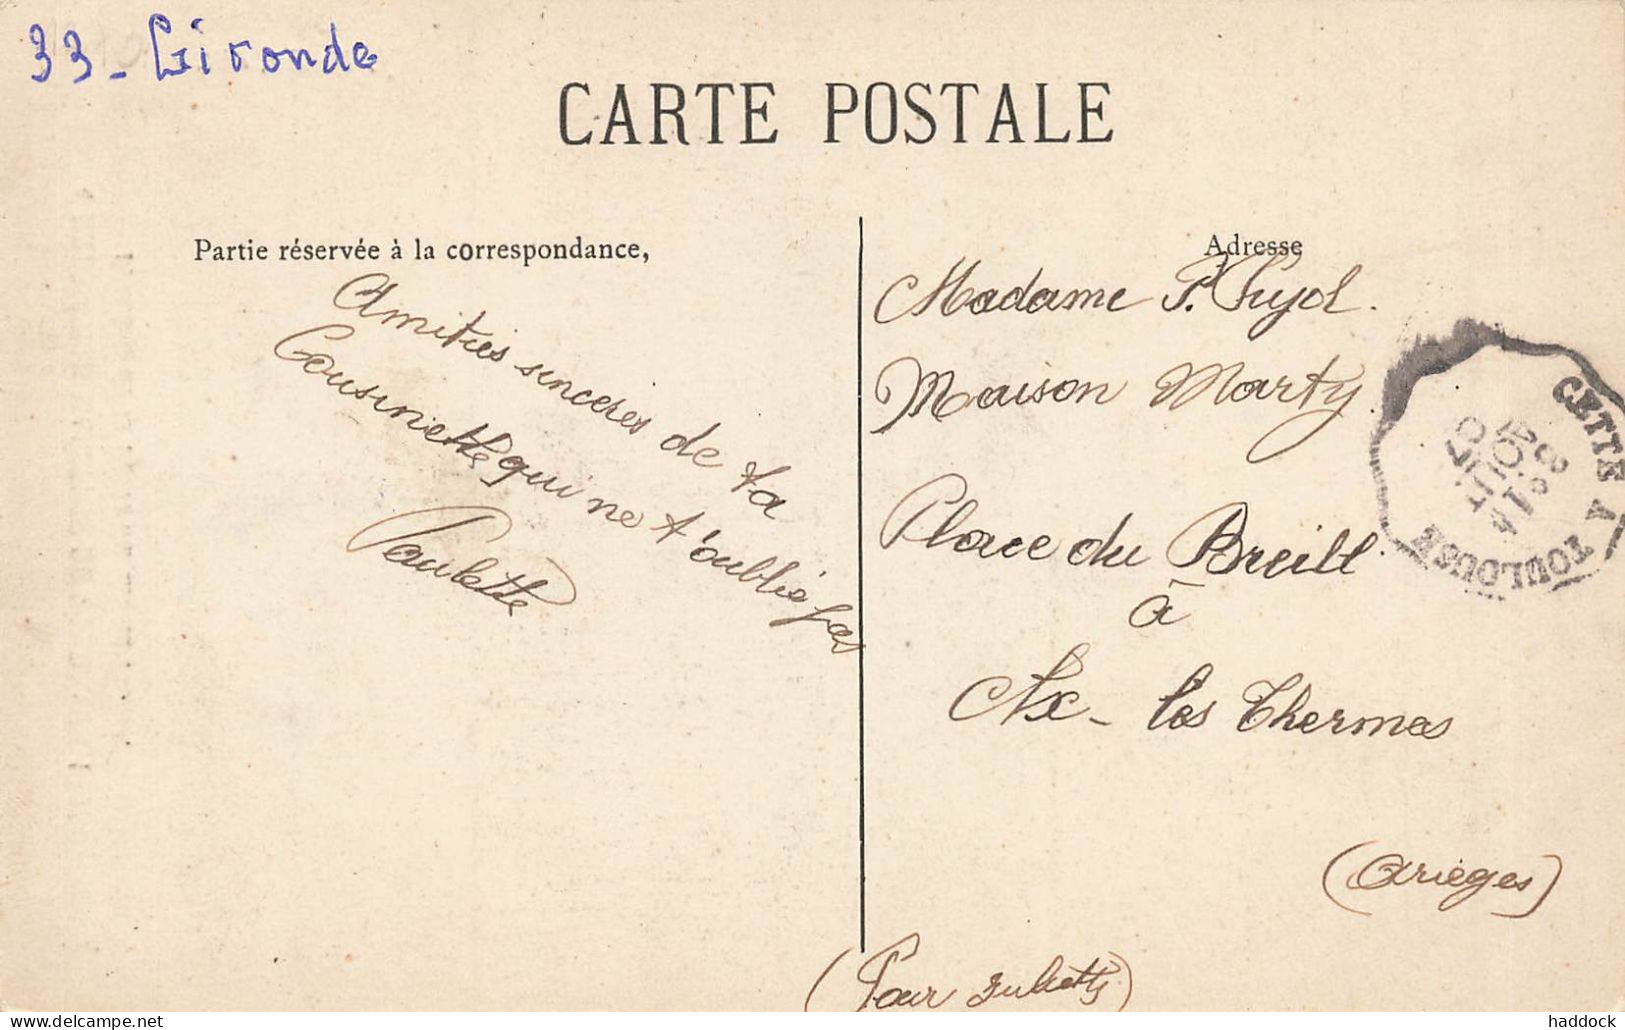 33 - Gironde
CARTE POSTALE
Partie réservée à la correspondance,
Amitiés sincères de ta
Cousinette qui ne t'oublie pas
Paulette
Adresse
Madame P. Pujol.
Maison Marty
Place du Breilh
à
Ax-les Thermes
(Arièges)
(Pour Juliette)
CETTE A TOULOUSE
AOUT
haddock